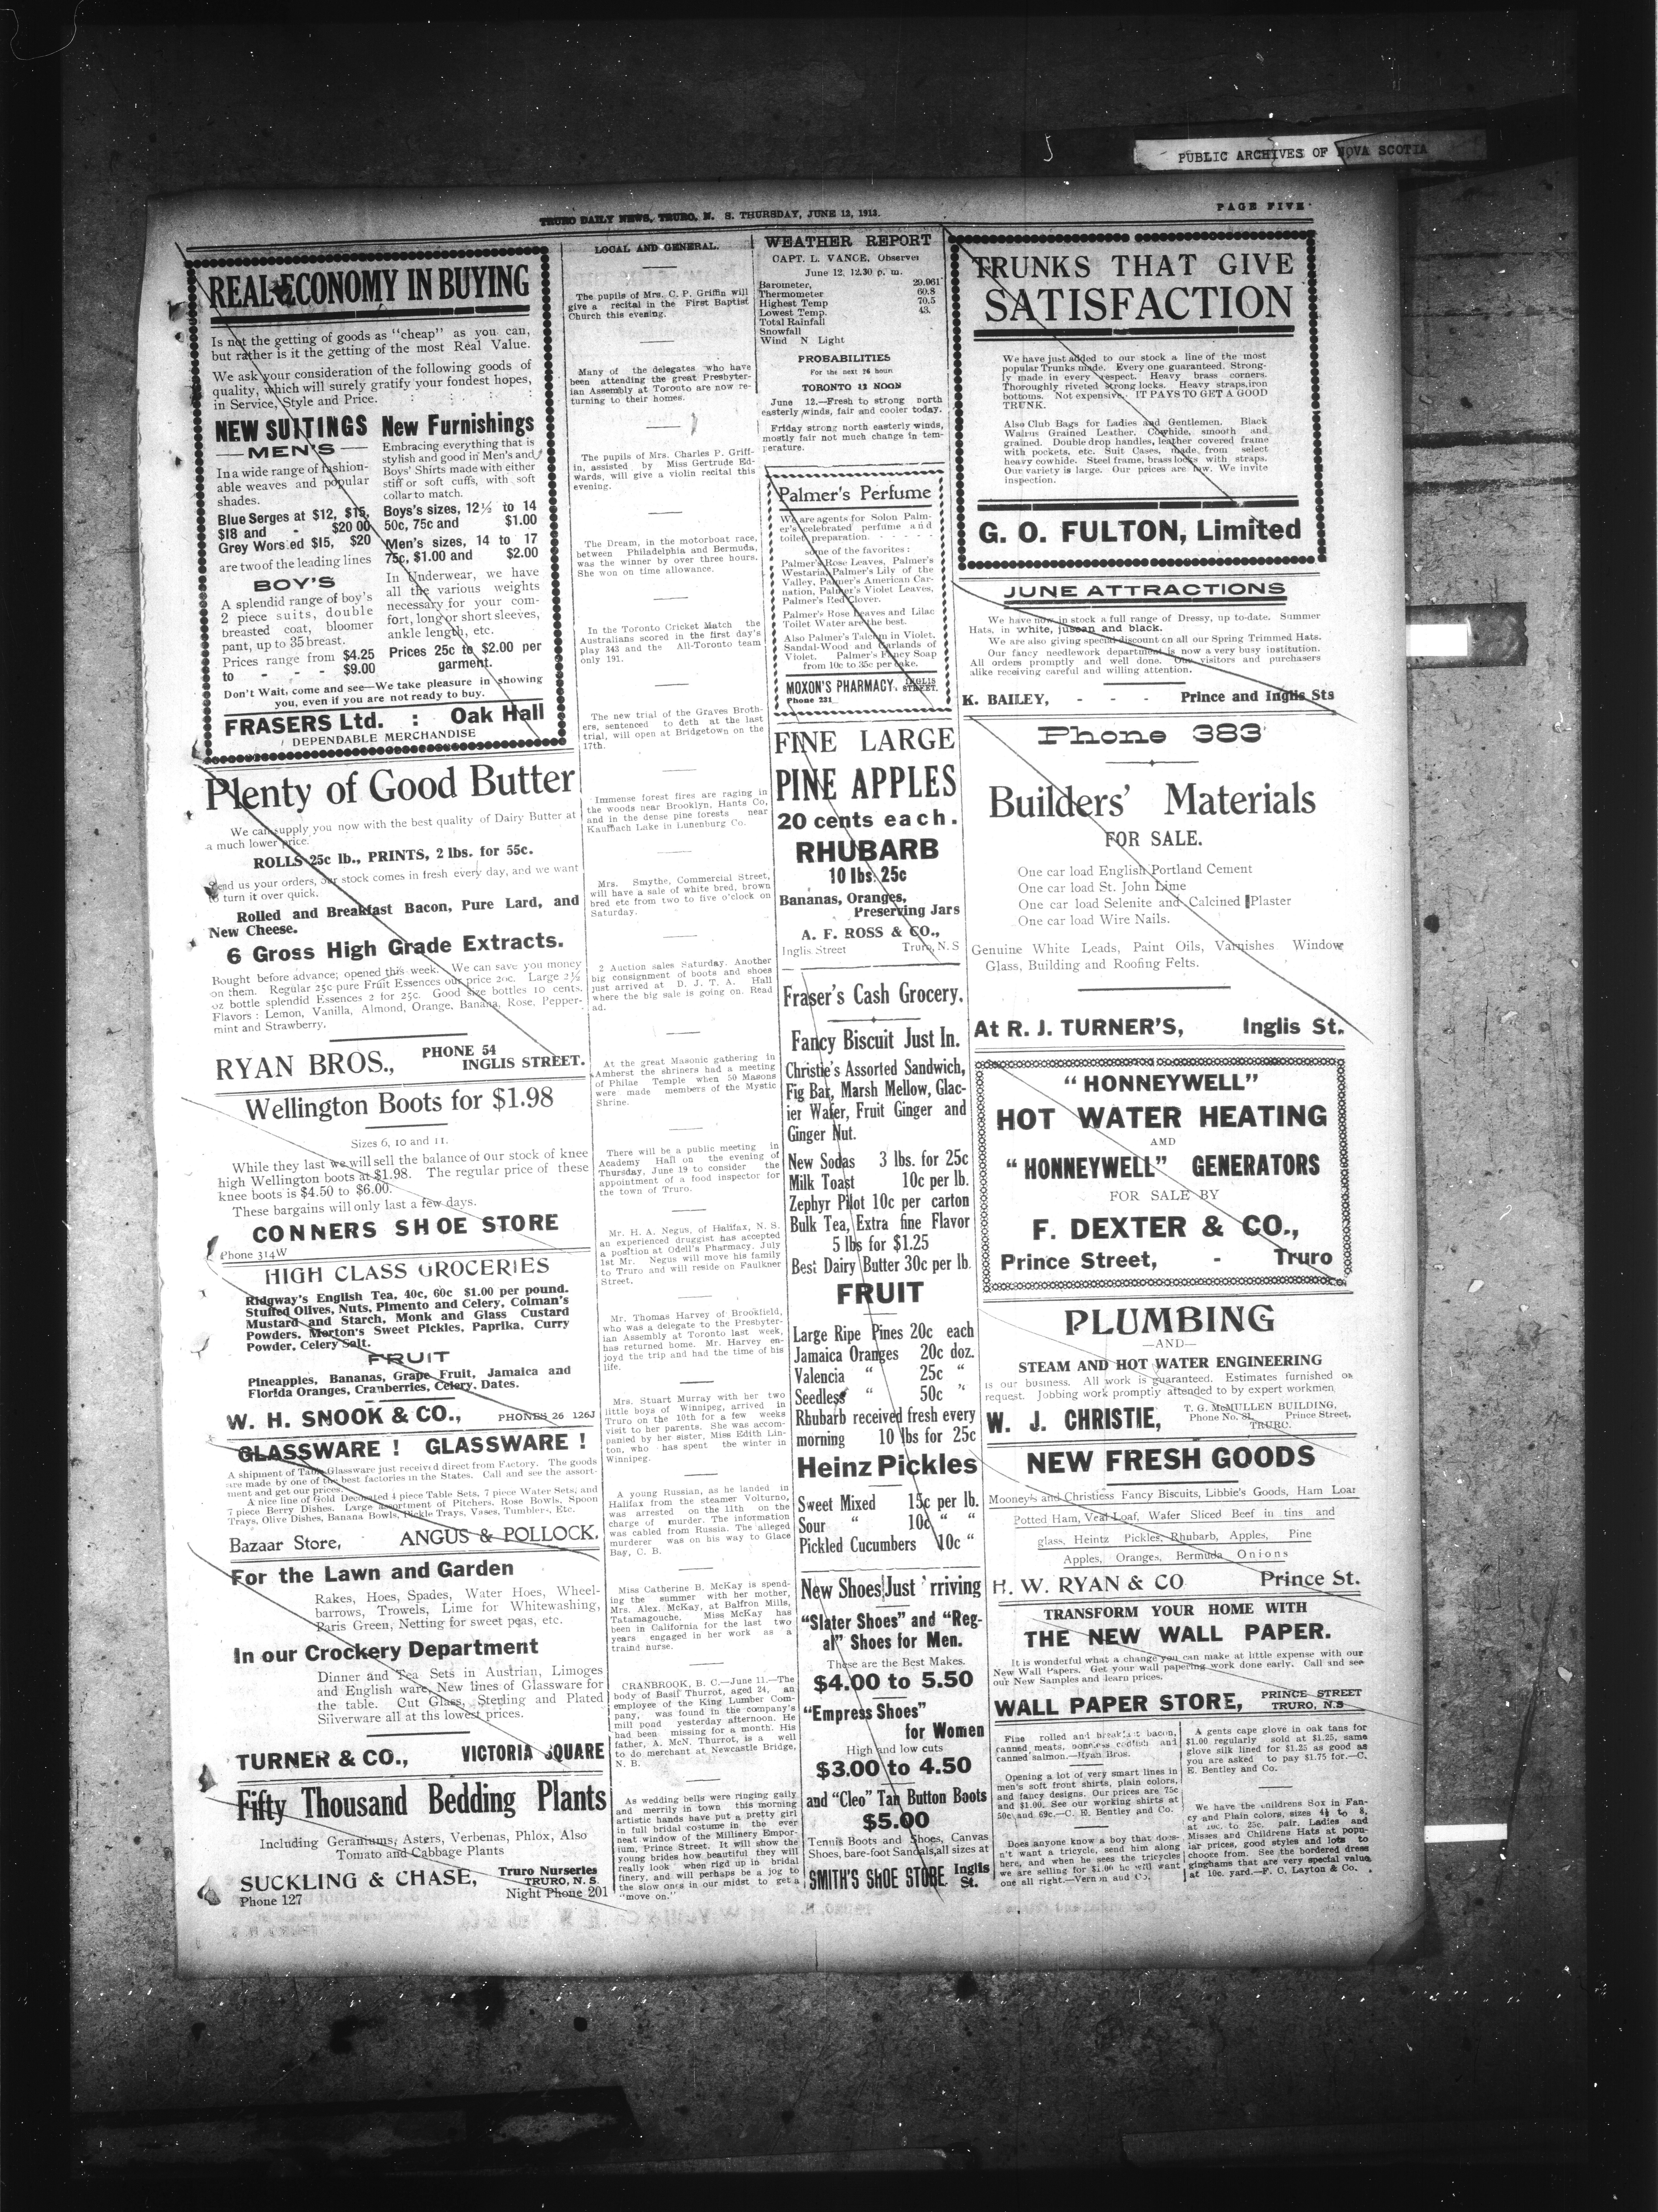 PUBLIC ARCHIVES OF NOVA SCOTIA
TRURO DAILY NEWS, TRURO, N. S. THURSDAY, JUNE 12, 1913.
PAGE FIVE
REAL ECONOMY IN BUYING
Is not the getting of goods as "cheap" as you can,
but rather is it the getting of the most Real Value.
We ask your consideration of the following goods of
quality, which will surely gratify your fondest hopes,
in Service, Style and Price. : : : :
NEW SUITINGS
—MEN'S—
In a wide range of fashion-
able weaves and popular
shades.
Blue Serges at $12, $15,
$18 and - $20 00
Grey Wors ed $15, $20
are two of the leading lines
BOY'S
A splendid range of boy's
2 piece suits, double
breasted coat, bloomer
pant, up to 35 breast.
Prices range from $4.25
to - - - $9.00
New Furnishings
Embracing everything that is
stylish and good in Men's and
Boys' Shirts made with either
stiff or soft cuffs, with soft
collar to match.
Boys's sizes, 12½ to 14
50c, 75c and $1.00
Men's sizes, 14 to 17
75c, $1.00 and $2.00
In Underwear, we have
all the various weights
necessary for your com-
fort, long or short sleeves,
ankle length, etc.
Prices 25c to $2.00 per
garment.
Don't Wait, come and see—We take pleasure in showing
you, even if you are not ready to buy.
FRASERS Ltd. : Oak Hall
DEPENDABLE MERCHANDISE
Plenty of Good Butter
We can supply you now with the best quality of Dairy Butter at
a much lower price.
ROLLS 25c lb., PRINTS, 2 lbs. for 55c.
Send us your orders, our stock comes in fresh every day, and we want
to turn it over quick.
Rolled and Breakfast Bacon, Pure Lard, and
New Cheese.
6 Gross High Grade Extracts.
Bought before advance; opened this week. We can save you money
on them. Regular 25c pure Fruit Essences our price 20c. Large 2½
oz bottle splendid Essences 2 for 25c. Good size bottles 10 cents.
Flavors : Lemon, Vanilla, Almond, Orange, Banana, Rose, Pepper-
mint and Strawberry.
RYAN BROS., PHONE 54
INGLIS STREET.
Wellington Boots for $1.98
Sizes 6, 10 and 11.
While they last we will sell the balance of our stock of knee
high Wellington boots at $1.98. The regular price of these
knee boots is $4.50 to $6.00.
These bargains will only last a few days.
CONNERS SHOE STORE
Phone 314W
HIGH CLASS GROCERIES
Ridgway's English Tea, 40c, 60c $1.00 per pound.
Stuffed Olives, Nuts, Pimento and Celery, Colman's
Mustard and Starch, Monk and Glass Custard
Powders, Morton's Sweet Pickles, Paprika, Curry
Powder, Celery Salt.
FRUIT
Pineapples, Bananas, Grape Fruit, Jamaica and
Florida Oranges, Cranberries, Celery, Dates.
W. H. SNOOK & CO., PHONES 26 126J
GLASSWARE ! GLASSWARE !
A shipment of Table Glassware just received direct from Factory. The goods
are made by one of the best factories in the States. Call and see the assort-
ment and get our prices.
A nice line of Gold Decorated 4 piece Table Sets, 7 piece Water Sets, and
7 piece Berry Dishes. Large assortment of Pitchers, Rose Bowls, Spoon
Trays, Olive Dishes, Banana Bowls, Pickle Trays, Vases, Tumblers, Etc.
Bazaar Store, ANGUS & POLLOCK.
For the Lawn and Garden
Rakes, Hoes, Spades, Water Hoes, Wheel-
barrows, Trowels, Lime for Whitewashing,
Paris Green, Netting for sweet peas, etc.
In our Crockery Department
Dinner and Tea Sets in Austrian, Limoges
and English ware, New lines of Glassware for
the table. Cut Glass, Sterling and Plated
Silverware all at ths lowest prices.
TURNER & CO., VICTORIA SQUARE
Fifty Thousand Bedding Plants
Including Geraniums, Asters, Verbenas, Phlox, Also
Tomato and Cabbage Plants
SUCKLING & CHASE, Truro Nurseries
TRURO, N. S.
Phone 127 Night Phone 201
LOCAL AND GENERAL.
The pupils of Mrs. C. P. Griffin will
give a recital in the First Baptist
Church this evening.
Many of the delegates who have
been attending the great Presbyter-
ian Assembly at Toronto are now re-
turning to their homes.
The pupils of Mrs. Charles P. Griff-
in, assisted by Miss Gertrude Ed-
wards, will give a violin recital this
evening.
The Dream, in the motorboat race,
between Philadelphia and Bermuda,
was the winner by over three hours.
She won on time allowance.
In the Toronto Cricket Match the
Australians scored in the first day's
play 343 and the All-Toronto team
only 191.
The new trial of the Graves Broth-
ers, sentenced to deth at the last
trial, will open at Bridgetown on the
17th.
Immense forest fires are raging in
the woods near Brooklyn, Hants Co,
and in the dense pine forests near
Kaulbach Lake in Lunenburg Co.
Mrs. Smythe, Commercial Street,
will have a sale of white bred, brown
bred etc from two to five o'clock on
Saturday.
2 Auction sales Saturday. Another
big consignment of boots and shoes
just arrived at D. J. T. A. Hall
where the big sale is going on. Read
ad.
At the great Masonic gathering in
Amherst the shriners had a meeting
of Philae Temple when 50 Masons
were made members of the Mystic
Shrine.
There will be a public meeting in
Academy Hall on the evening of
Thursday, June 19 to consider the
appointment of a food inspector for
the town of Truro.
Mr. H. A. Negus, of Halifax, N. S.
an experienced druggist has accepted
a position at Odell's Pharmacy. July
1st Mr. Negus will move his family
to Truro and will reside on Faulkner
Street.
Mr. Thomas Harvey of Brookfield,
who was a delegate to the Presbyter-
ian Assembly at Toronto last week,
has returned home. Mr. Harvey en-
joyd the trip and had the time of his
life.
Mrs. Stuart Murray with her two
little boys of Winnipeg, arrived in
Truro on the 10th for a few weeks
visit to her parents. She was accom-
panied by her sister, Miss Edith Lin-
ton, who has spent the winter in
Winnipeg.
A young Russian, as he landed in
Halifax from the steamer Volturno,
was arrested on the 11th on the
charge of murder. The information
was cabled from Russia. The alleged
murderer was on his way to Glace
Bay, C. B.
Miss Catherine B. McKay is spend-
ing the summer with her mother,
Mrs. Alex. McKay, at Balfron Mills,
Tatamagouche. Miss McKay has
been in California for the last two
years engaged in her work as a
traind nurse.
CRANBROOK, B. C.—June 11.—The
body of Basil Thurrot, aged 24, an
employee of the King Lumber Com-
pany, was found in the company's
mill pond yesterday afternoon. He
had been missing for a month. His
father, A. McN. Thurrot, is a well
to do merchant at Newcastle Bridge,
N. B.
As wedding bells were ringing gaily
and merrily in town this morning
artistic hands have put a pretty girl
in full bridal costume in the ever
neat window of the Millinery Empor-
ium, Prince Street. It will show the
young brides how beautiful they will
really look when rigd up in bridal
finery, and will perhaps be a jog to
the slow ones in our midst to get a
"move on."
WEATHER REPORT
CAPT. L. VANCE, Observer
June 12, 12.30 p. m.
Barometer, 29.961
Thermometer 60.8
Highest Temp 70.5
Lowest Temp. 43.
Total Rainfall
Snowfall
Wind N Light
PROBABILITIES
For the next 24 hours
TORONTO 12 NOON
June 12.—Fresh to strong north
easterly winds, fair and cooler today.
Friday strong north easterly winds,
mostly fair not much change in tem-
perature.
Palmer's Perfume
We are agents for Solon Palm-
er's celebrated perfume and
toilet preparation.
some of the favorites :
Palmer's Rose Leaves, Palmer's
Westaria, Palmer's Lily of the
Valley, Palmer's American Car-
nation, Palmer's Violet Leaves,
Palmer's Red Clover.
Palmer's Rose Leaves and Lilac
Toilet Water are the best.
Also Palmer's Talcum in Violet,
Sandal-Wood and Garlands of
Violet. Palmer's Fancy Soap
from 10c to 35c per cake.
MOXON'S PHARMACY, INGLIS STREET.
Phone 231
FINE LARGE
PINE APPLES
20 cents each.
RHUBARB
10 lbs. 25c
Bananas, Oranges,
Preserving Jars
A. F. ROSS & CO.,
Inglis Street Truro, N. S
Fraser's Cash Grocery.
Fancy Biscuit Just In.
Christie's Assorted Sandwich,
Fig Bar, Marsh Mellow, Glac-
ier Wafer, Fruit Ginger and
Ginger Nut.
New Sodas 3 lbs. for 25c
Milk Toast 10c per lb.
Zephyr Pilot 10c per carton
Bulk Tea, Extra fine Flavor
5 lbs for $1.25
Best Dairy Butter 30c per lb.
FRUIT
Large Ripe Pines 20c each
Jamaica Oranges 20c doz.
Valencia " 25c "
Seedless " 50c "
Rhubarb received fresh every
morning 10 lbs for 25c
Heinz Pickles
Sweet Mixed 15c per lb.
Sour " 10c " "
Pickled Cucumbers 10c "
New Shoes Just 'rriving
"Slater Shoes" and "Reg-
al" Shoes for Men.
These are the Best Makes.
$4.00 to 5.50
"Empress Shoes"
for Women
High and low cuts
$3.00 to 4.50
and "Cleo" Tan Button Boots
$5.00
Tennis Boots and Shoes, Canvas
Shoes, bare-foot Sandals, all sizes at
SMITH'S SHOE STORE, Inglis St.
TRUNKS THAT GIVE
SATISFACTION
We have just added to our stock a line of the most
popular Trunks made. Every one guaranteed. Strong-
ly made in every respect. Heavy brass corners.
Thoroughly riveted strong locks. Heavy straps, iron
bottoms. Not expensive. IT PAYS TO GET A GOOD
TRUNK.
Also Club Bags for Ladies and Gentlemen. Black
Walrus Grained Leather. Cowhide, smooth and
grained. Double drop handles, leather covered frame
with pockets, etc. Suit Cases, made from select
heavy cowhide. Steel frame, brass locks with straps.
Our variety is large. Our prices are low. We invite
inspection.
G. O. FULTON, Limited
JUNE ATTRACTIONS
We have now in stock a full range of Dressy, up to-date. Summer
Hats, in white, and black.
We are also giving special discount on all our Spring Trimmed Hats.
Our fancy needlework department is now a very busy institution.
All orders promptly and well done. Our visitors and purchasers
alike receiving careful and willing attention.
K. BAILEY, - - - Prince and Inglis Sts
Phone 383
Builders' Materials
FOR SALE.
One car load English Portland Cement
One car load St. John Lime
One car load Selenite and Calcined Plaster
One car load Wire Nails.
Genuine White Leads, Paint Oils, Varnishes Window
Glass, Building and Roofing Felts.
At R. J. TURNER'S, Inglis St.
"HONNEYWELL"
HOT WATER HEATING
AMD
"HONNEYWELL" GENERATORS
FOR SALE BY
F. DEXTER & CO.,
Prince Street, - Truro
PLUMBING
—AND—
STEAM AND HOT WATER ENGINEERING
is our business. All work is guaranteed. Estimates furnished on
request. Jobbing work promptly attended to by expert workmen
W. J. CHRISTIE, T. G. McMULLEN BUILDING,
Phone No. Prince Street,
TRURO.
NEW FRESH GOODS
Mooney's and Christiess Fancy Biscuits, Libbie's Goods, Ham Loaf
Potted Ham, Veal Loaf, Wafer Sliced Beef in tins and
glass, Heintz Pickles, Rhubarb, Apples, Pine
Apples, Oranges, Bermuda Onions
H. W. RYAN & CO Prince St.
TRANSFORM YOUR HOME WITH
THE NEW WALL PAPER.
It is wonderful what a change you can make at little expense with our
New Wall Papers. Get your wall papering work done early. Call and see
our New Samples and learn prices.
WALL PAPER STORE, PRINCE STREET
TRURO, N.S
Fine rolled and breakfast bacon,
canned meats, boneless codfish and
canned salmon.—Ryan Bros.
Opening a lot of very smart lines in
men's soft front shirts, plain colors,
and fancy designs. Our prices are 75c
and $1.00. See our working shirts at
50c and 69c.—C. E. Bentley and Co.
Does anyone know a boy that does-
n't want a tricycle, send him along
here, and when he sees the tricycles
we are selling for $1.00 he will want
one all right.—Vernon and Co.
A gents cape glove in oak tans for
$1.00 regularly sold at $1.25, same
glove silk lined for $1.25 as good as
you are asked to pay $1.75 for.—C.
E. Bentley and Co.
We have the childrens Sox in Fan-
cy and Plain colors, sizes 4½ to 8,
at 10c. to 25c. pair. Ladies and
Misses and Childrens Hats at popu-
lar prices, good styles and lots to
chooce from. See the bordered dress
ginghams that are very special value
at 10c. yard.—F. C. Layton & Co.